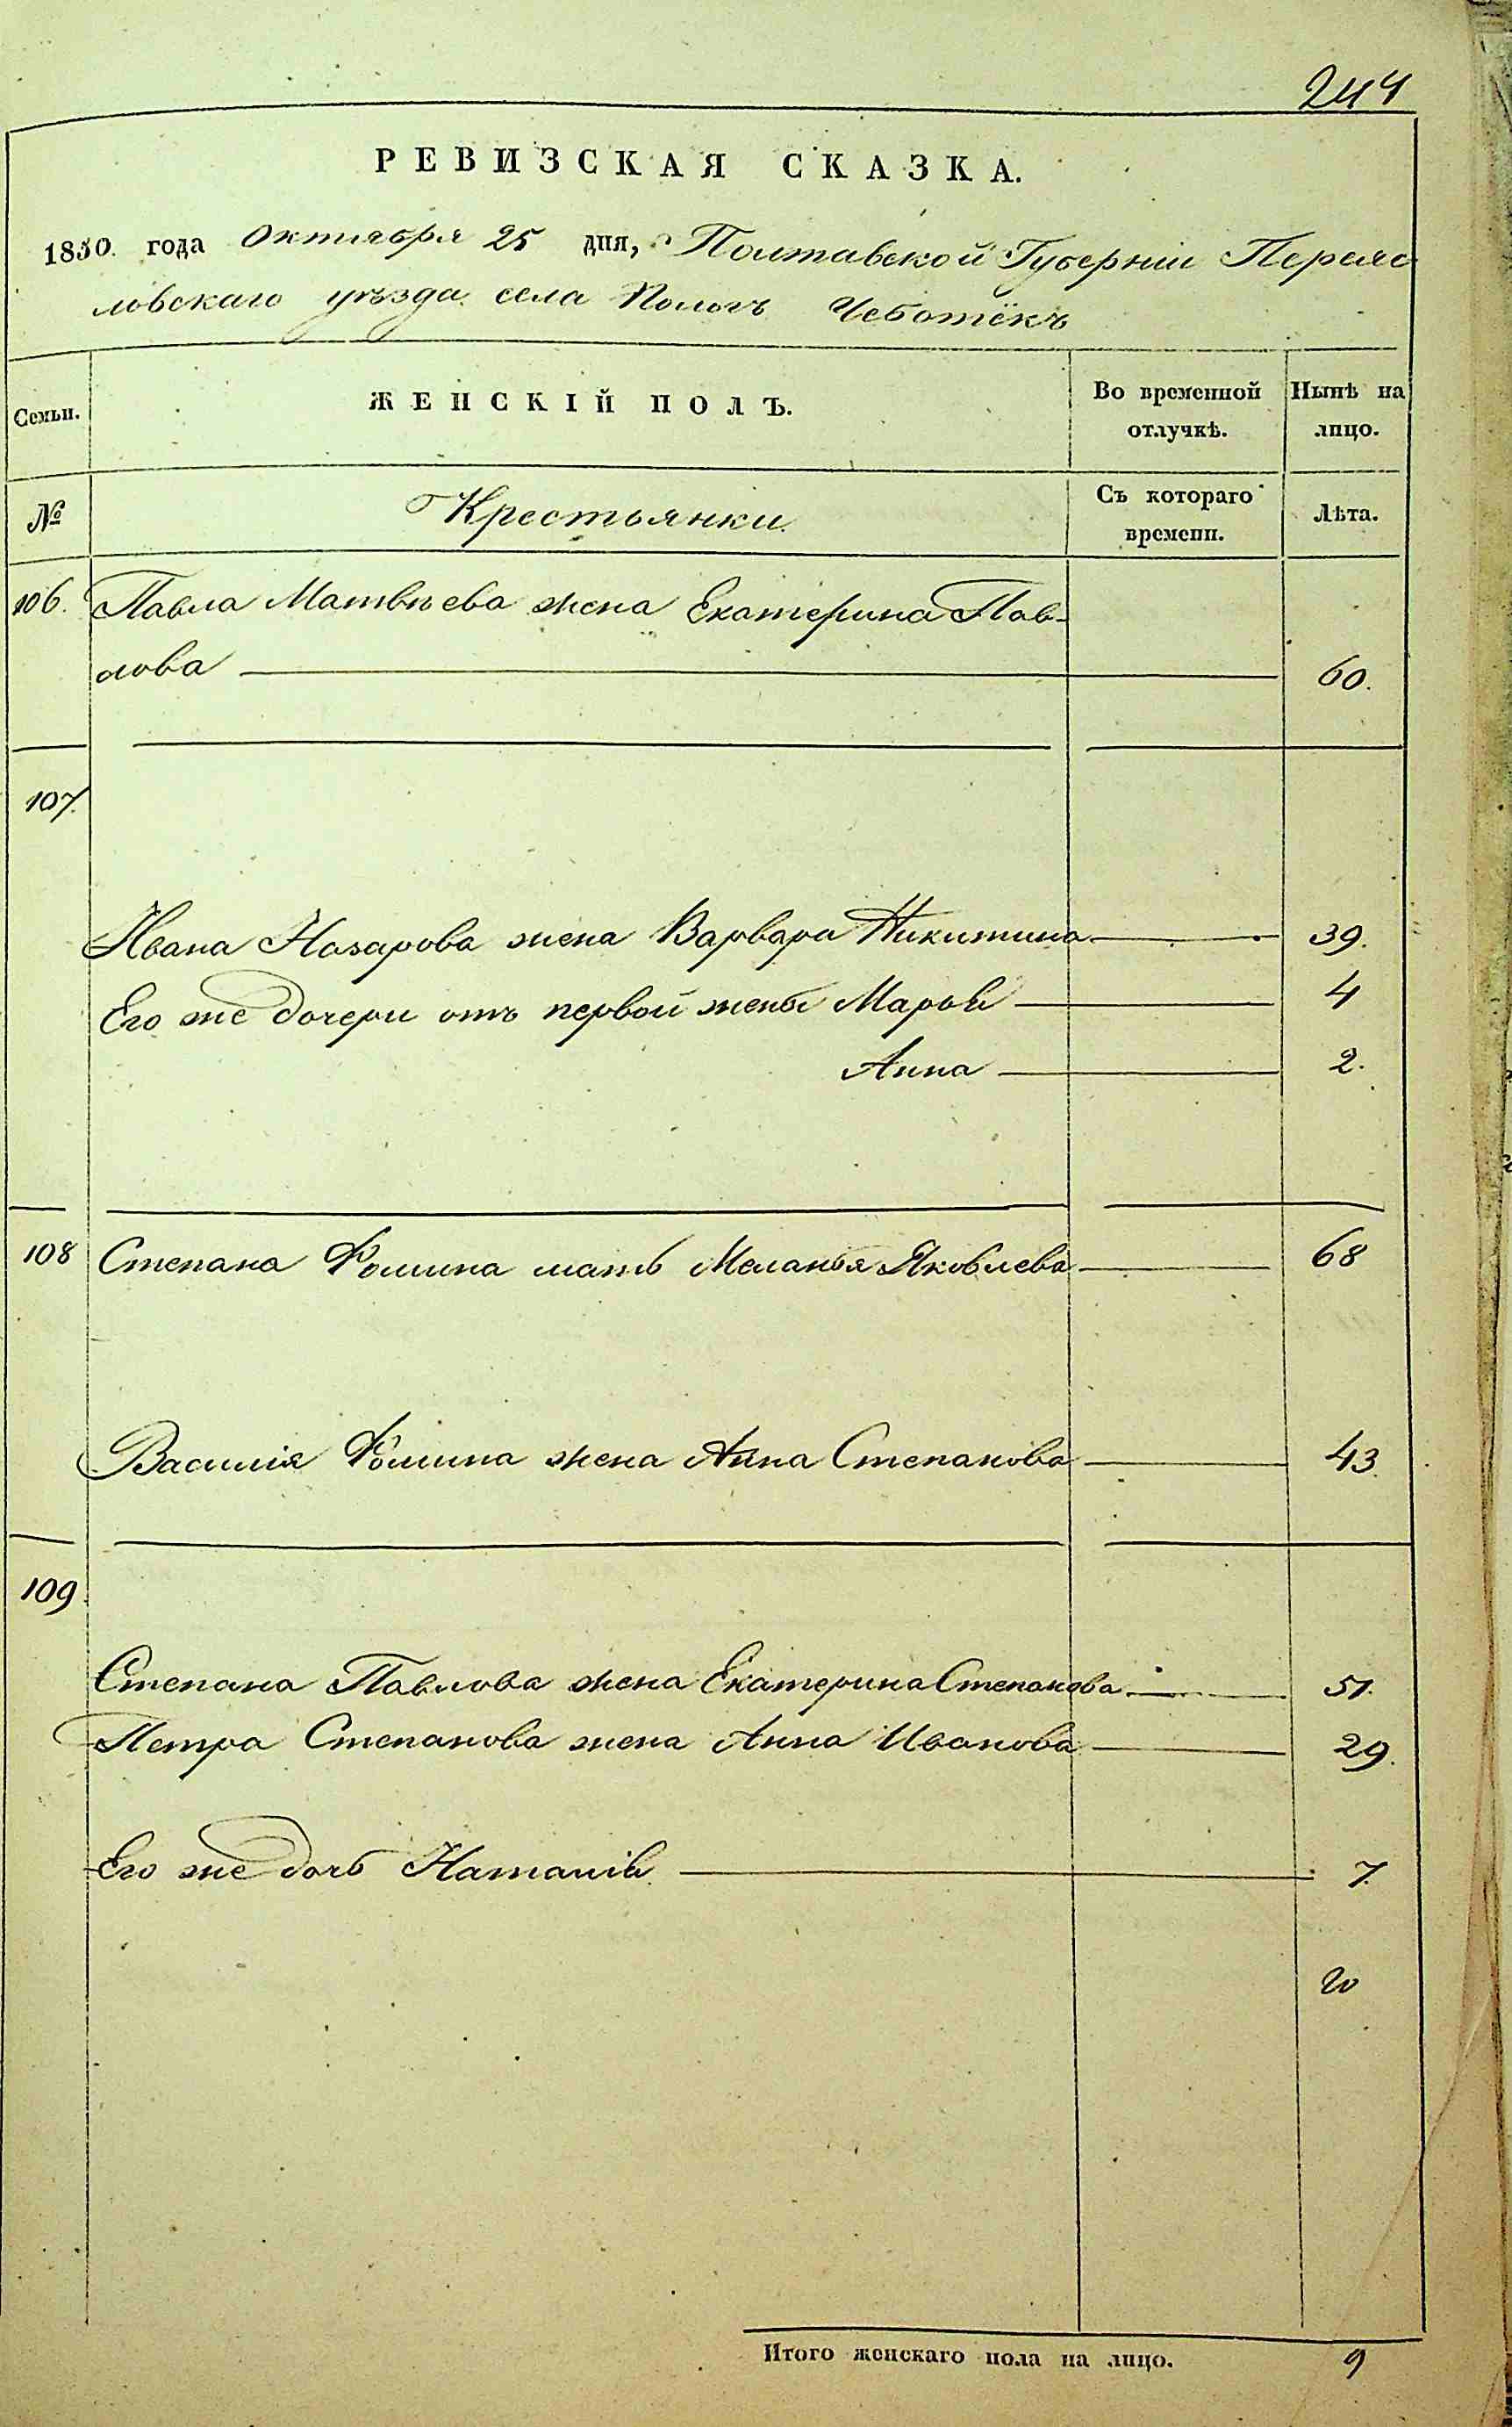 244
РЕВИЗСКАЯ СКАЗКА.
1850. года Октября 25 дня, Полтавской Губерніи Переяс
ловскаго уѣзда села Пологъ Чеботёкъ
Семьи. ЖЕНСКІЙ ПОЛЪ. Во временной отлучкѣ. Нынѣ на лицо.
№ Крестьянки Съ котораго времени. Лѣта.
106. Павла Матвѣева жена Екатерина Пав-
лова 60.
107.
Ивана Назарова жена Варвара Никитина 39.
Его же дочери отъ первой жены Марья 4
Анна 2.
108 Степана Фомина мать Меланья Яковлева 68
Василія Фомина жена Анна Степанова 43.
109.
Степана Павлова жена Екатерина Степанова 51.
Петра Степанова жена Анна Иванова 29.
Его же дочь Наталія 7.
Итого женскаго пола на лицо. 9